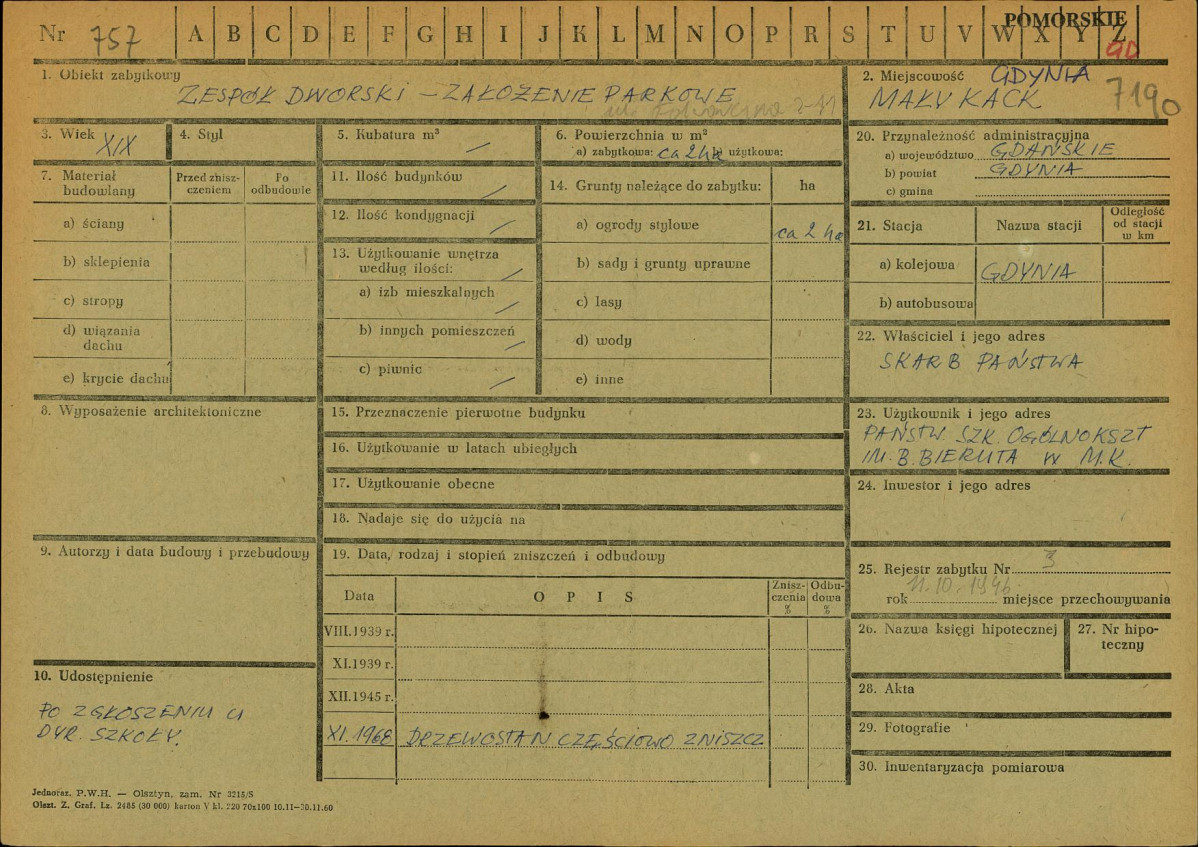 Nr 757 A B C D E F G H I J K L M N O P R S T U V W X Y Z
POMORSKIE
GD
1. Obiekt zabytkowy
ZESPÓŁ DWORSKI – ZAŁOŻENIE PARKOWE
2. Miejscowość GDYNIA
MAŁY KACK
7190
3. Wiek XIX
4. Styl
5. Kubatura m³ —
6. Powierzchnia w m²
a) zabytkowa: ca 2 ha b) użytkowa:
7. Materiał budowlany
Przed zniszczeniem
Po odbudowie
a) ściany
b) sklepienia
c) stropy
d) wiązania dachu
e) krycie dachu
8. Wyposażenie architektoniczne
9. Autorzy i data budowy i przebudowy
10. Udostępnienie
PO ZGŁOSZENIU U
DYR. SZKOŁY.
11. Ilość budynków —
12. Ilość kondygnacji —
13. Użytkowanie wnętrza
według ilości: —
a) izb mieszkalnych —
b) innych pomieszczeń —
c) piwnic —
14. Grunty należące do zabytku: ha
a) ogrody stylowe ca 2 ha
b) sady i grunty uprawne
c) lasy
d) wody
e) inne
15. Przeznaczenie pierwotne budynku
16. Użytkowanie w latach ubiegłych
17. Użytkowanie obecne
18. Nadaje się do użycia na
19. Data, rodzaj i stopień zniszczeń i odbudowy
Data
OPIS
Zniszczenia %
Odbudowa %
VIII.1939 r.
XI.1939 r.
XII.1945 r.
XI.1968 DRZEWOSTAN CZĘŚCIOWO ZNISZCZ
20. Przynależność administracyjna
a) województwo GDAŃSKIE
b) powiat GDYNIA
c) gmina
21. Stacja
Nazwa stacji
Odległość od stacji w km
a) kolejowa GDYNIA
b) autobusowa
22. Właściciel i jego adres
SKARB PAŃSTWA
23. Użytkownik i jego adres
PAŃSTW. SZK. OGÓLNOKSZT
IM. B. BIERUTA W M.K.
24. Inwestor i jego adres
25. Rejestr zabytku Nr 3
rok 11.10.1946 miejsce przechowywania
26. Nazwa księgi hipotecznej
27. Nr hipoteczny
28. Akta
29. Fotografie
30. Inwentaryzacja pomiarowa
Jednoraz. P.W.H. — Olsztyn, zam. Nr 3215/S
Olszt. Z. Graf. Lz. 2485 (30 000) karton V kl. 220 70x100 10.11—30.11.60